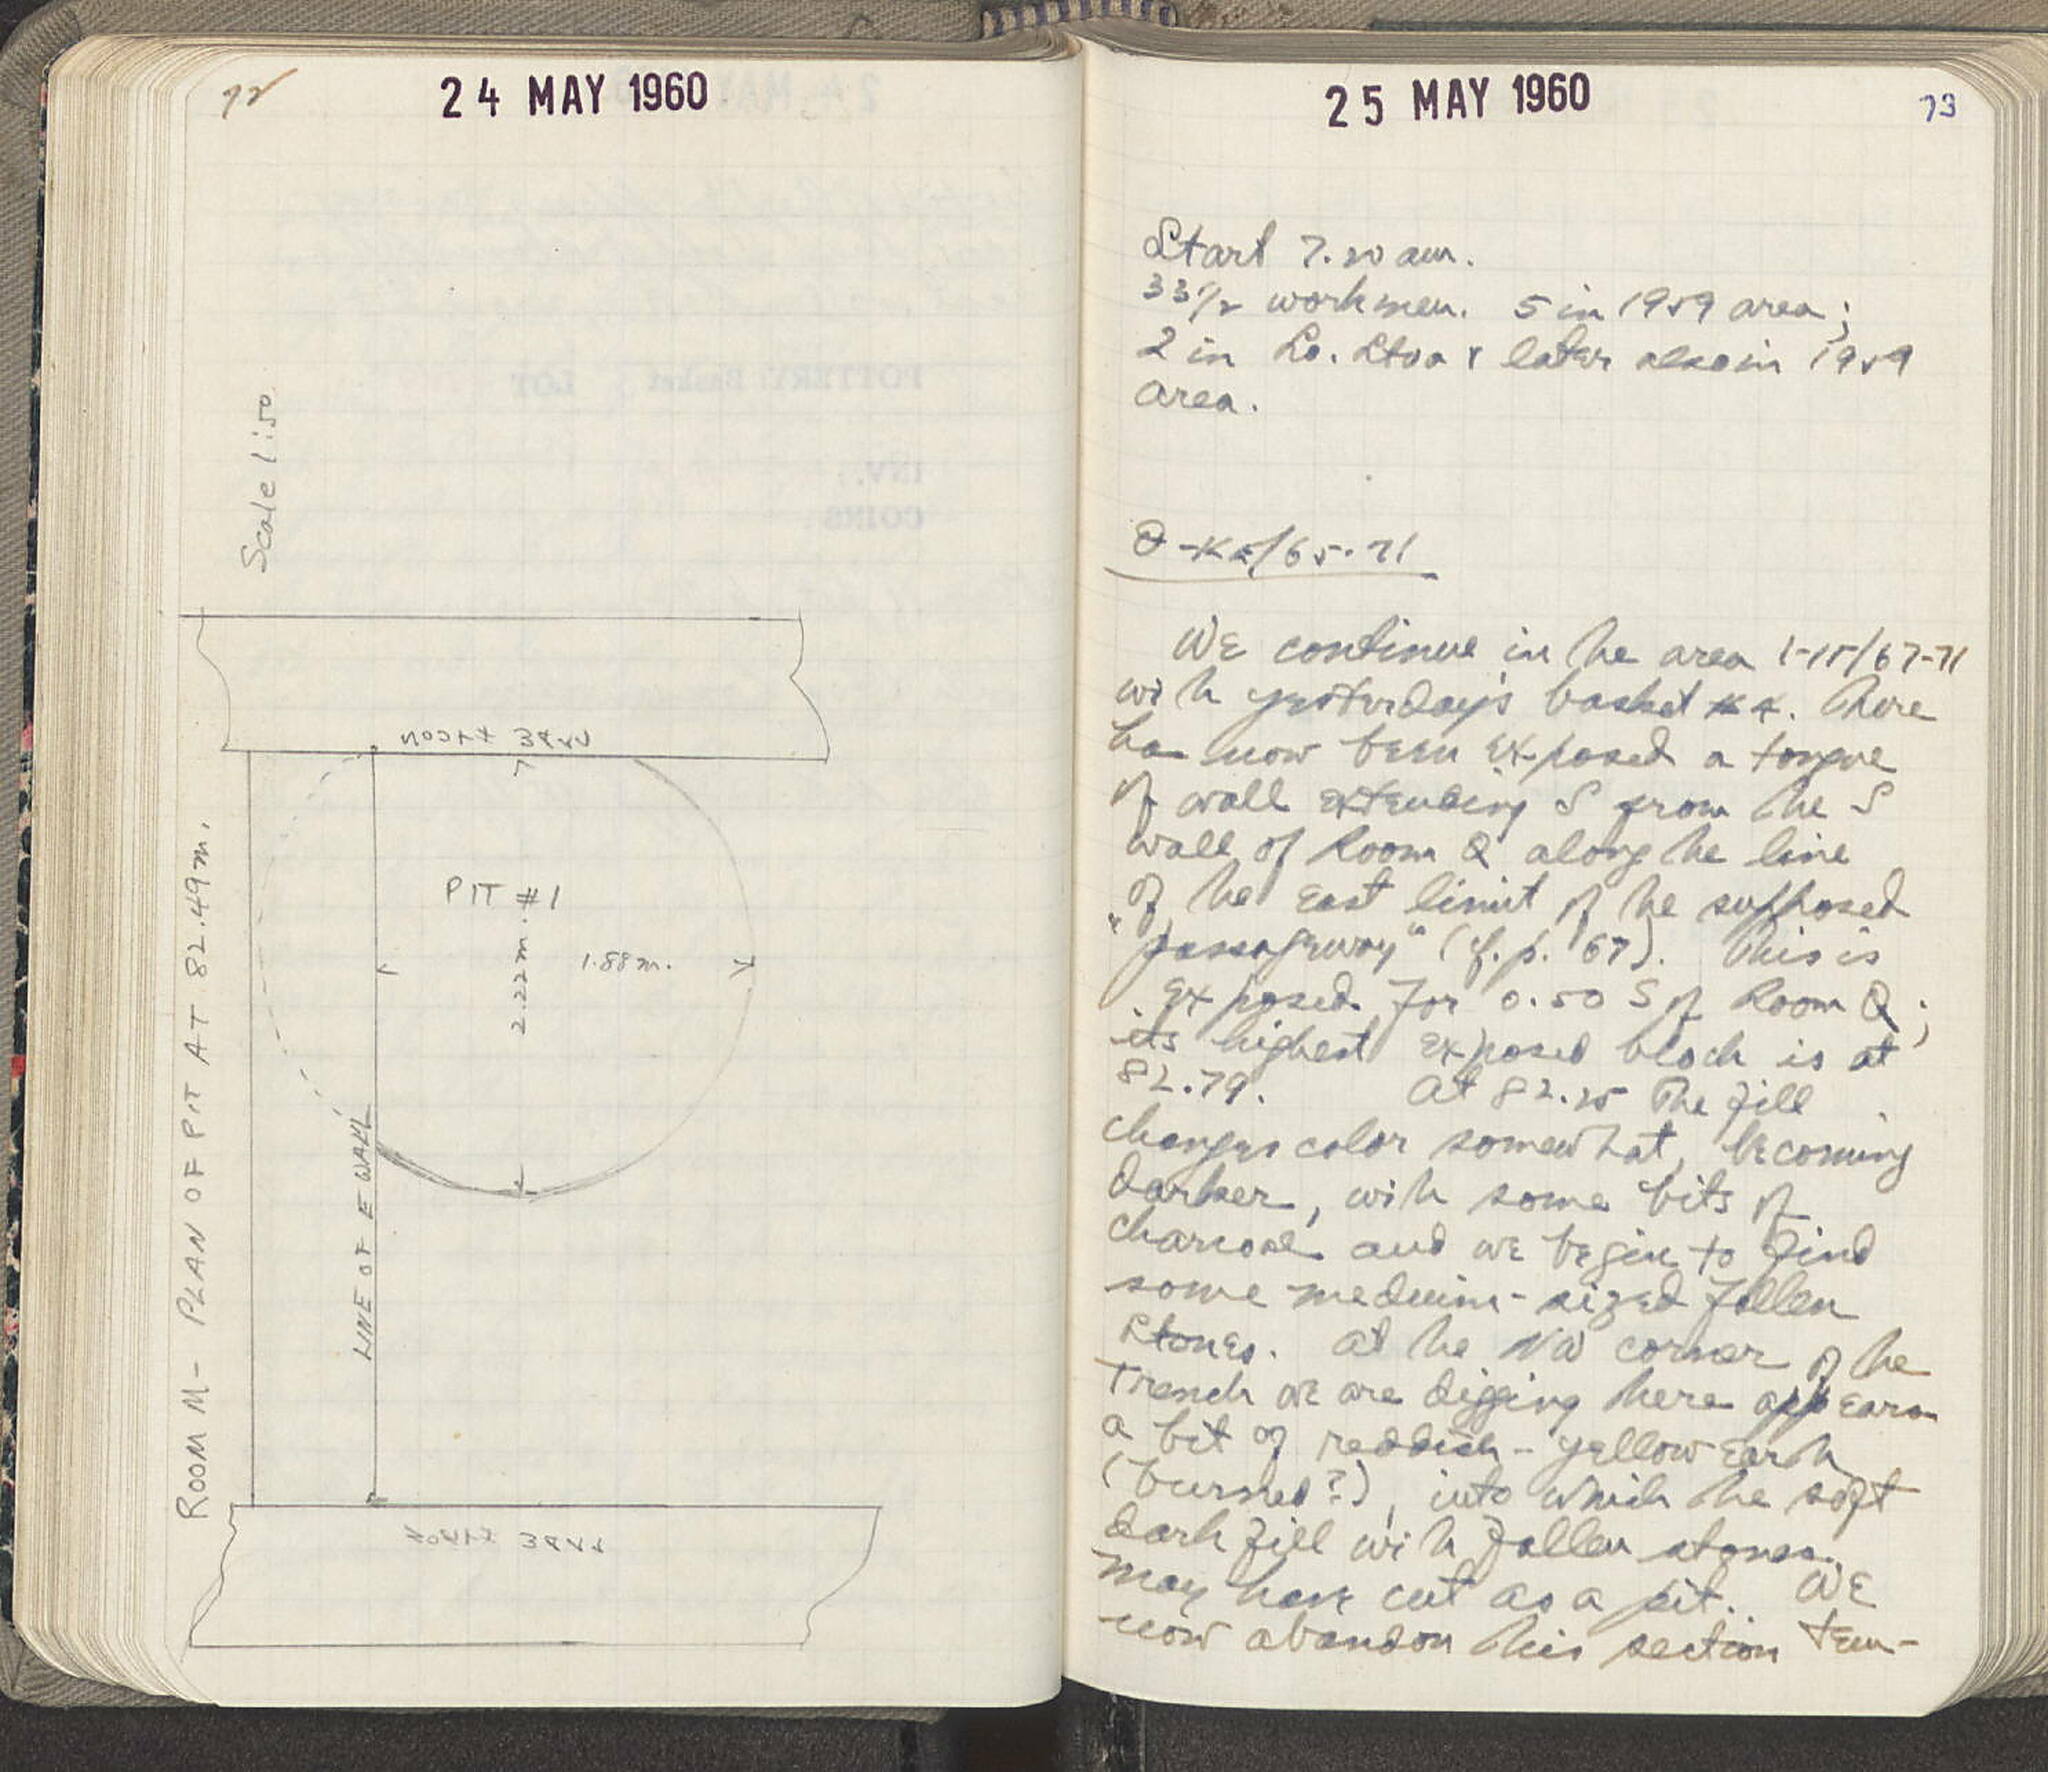 72
24 MAY 1960
Scale 1:50
ROOM M- PLAN OF PIT AT 82.49m.
NORTH WALL
PIT #1
2.22m.
1.88m.
LINE OF E WALL
25 MAY 1960
73
Start 7.20 am.
33½ workmen. 5 in 1959 area;
2 in So. Stoa & later also in 1959
area.
/65-71
We continue in the area 1-15/67-71
with yesterday's basket There
has now been exposed a tongue
of wall extending S from the S
wall of Room Q along the line
of the East limit of the supposed
"passageway" (cf. p. 67). This is
exposed for 0.50 S of Room Q;
its highest exposed block is at
82.79. At 82.25 The fill
changes color somewhat, becoming
darker, with some bits of
charcoal and we begin to find
some medium-sized fallen
stones. At the NW corner of the
Trench we are digging there appears
a bit of reddish-yellow earth
(burned?), into which the soft
dark fill with fallen stones
may have cut as a pit. We
now abandon this section tem-